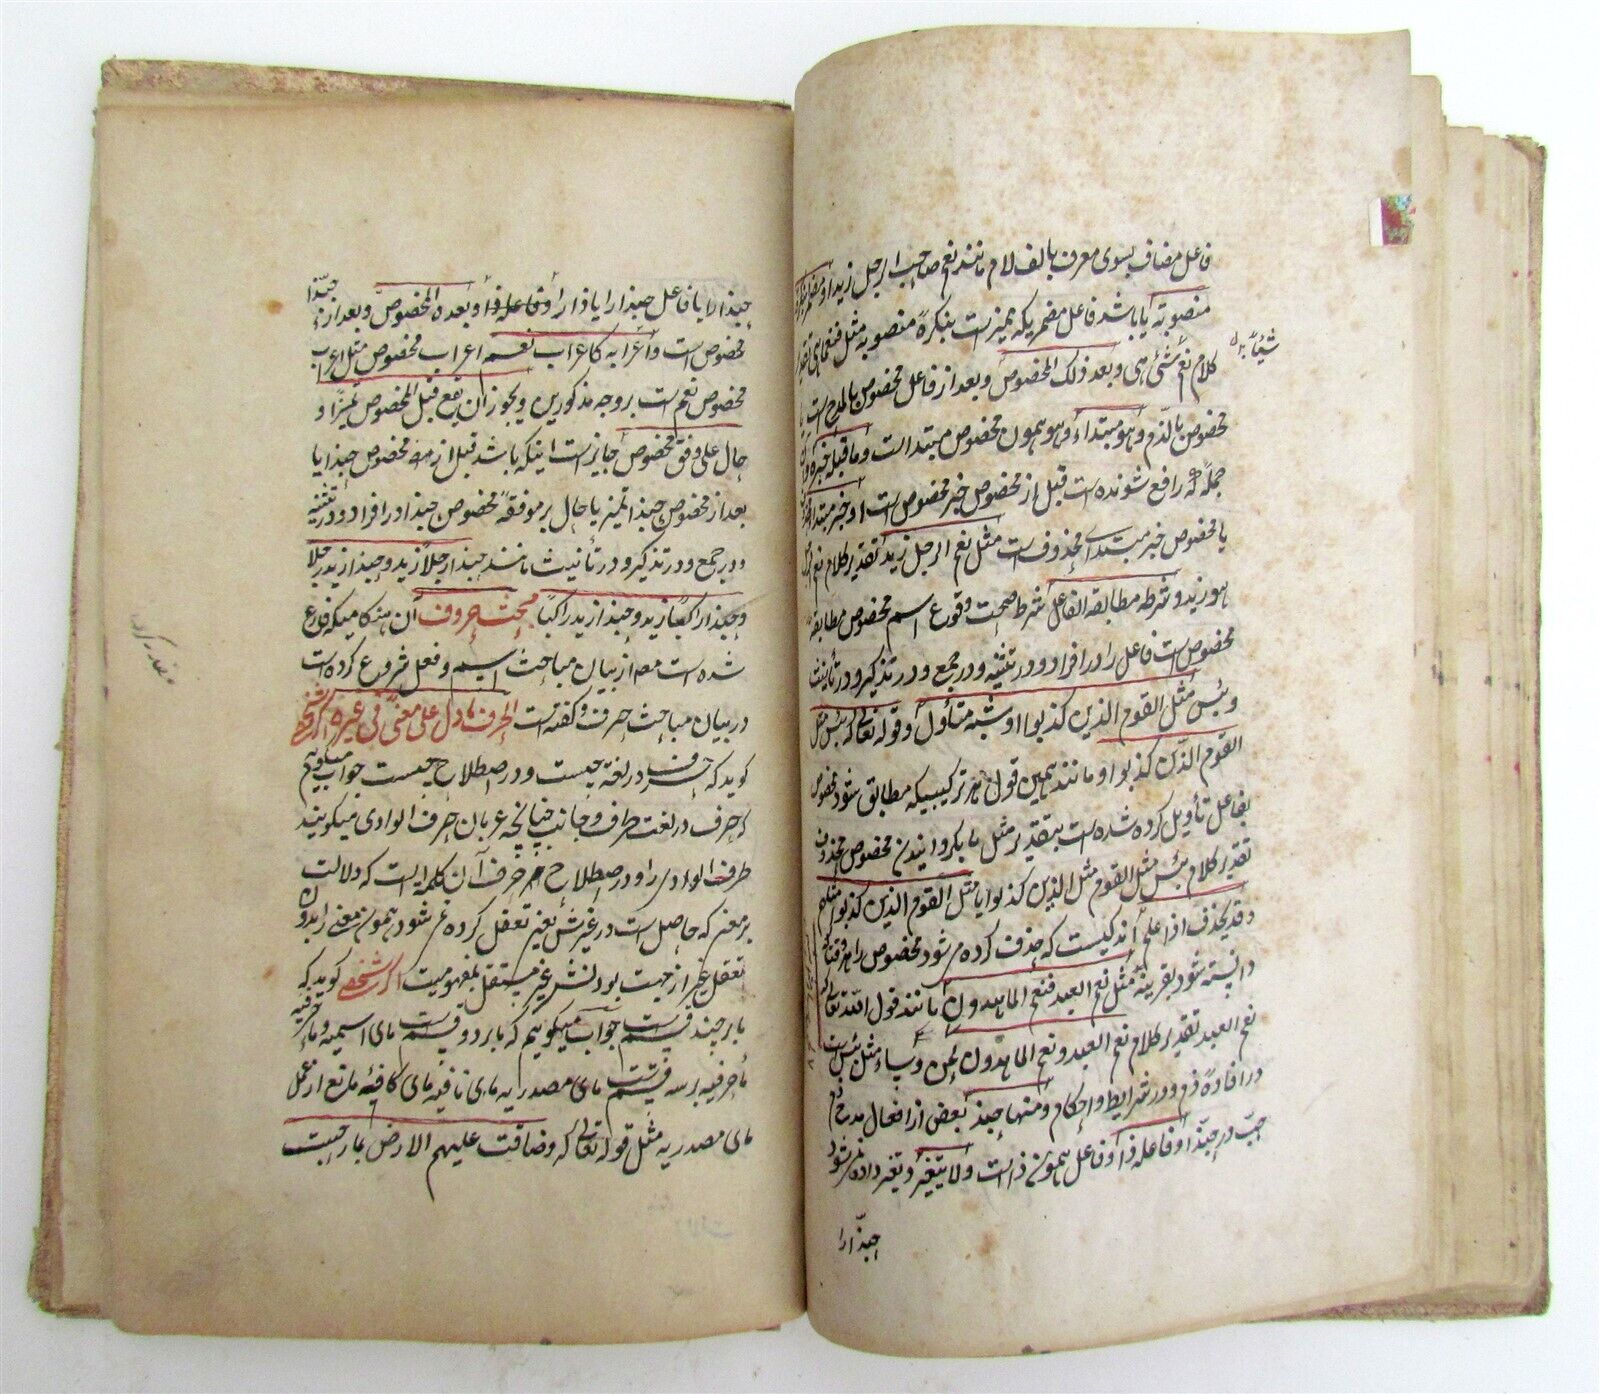 فاعل مضاف بسوی معرف بالف لام مانند نعم صاحب الرجل زید او مضمر
منصوبة یا باشد فاعل مضمریکه ممیز است بنکرهٔ منصوبه مثل فنعما هی
شیئاً
کلام نعم شئی هی وبعد ذلک المخصوص وبعد از فاعل مخصوص بالمدح است
مخصوص بالذم وهو مبتداء وهو همون مخصوص مبتدا است وما قبله خبره
جملهٔ که رافع شونده است قبل از مخصوص خبر مخصوص است او خبر مبتدا
یا مخصوص خبر مبتدای محذوف است مثل نعم الرجل زید تقدیر کلام نعم
هو زید وشرطه مطابقة الفاعل شرط صحت وقوع اسم مخصوص مطابقه
مخصوص است فاعل را در افراد ودر تثنیه ودر جمع ودر تذکیر ودر تأنیث
وبئس مثل القوم الذین کذبوا وشبهه متأول وقوله تعالی که بئس مثل
القوم الذین کذبوا ومانند همین قول هر ترکیبیکه مطابق نشود مخصوص
بفاعل تأویل کرده شده است بتقدیر مثل
تقدیر کلام بئس مثل القوم مثل الذین کذبوا یا مثل القوم الذین کذبوا مثلهم
وقد یحذف اذا علم اندکیست که حذف کرده می شود مخصوص را
دانسته شود بقرینه مثل نعم العبد فنعم الماهدون مانند قول الله تعالی
نعم العبد تقدیر کلام نعم العبد ونعم الماهدون نحن وساء مثل بئس است
در افادهٔ ذم ودر شرایط واحکام ومنها حبذا بعض از افعال مدح وذم
حب در حبذا وفاعله ذا وفاعل همون ذا است ولا یتغیر وتغیر داده نمی شود
حبذا را
حبذا را یا فاعل حبذا را یا ذا را وفاعله ذا وبعده المخصوص وبعد از حبذا
مخصوص است واعرابه کاعراب نعم اعراب مخصوص مثل اعراب
مخصوص نعم است بروجه مذکورین ویجوز ان یقع قبل المخصوص تمیزاً و
حال علی وفق مخصوص جایز است اینکه باشد قبل از مخصوص حبذا یا
بعد از مخصوص حبذا تمیز یا حال بر موفقهٔ مخصوص حبذا در افراد ودر تثنیه
ودر جمع ودر تذکیر ودر تأنیث مانند حبذا رجلاً زید وحبذا زید رجلا
وحبذا راکباً زید وحبذا زید راکباً مبحث حروف آن هنکامیکه فارغ
شده است مصـ از بیان مباحث اسم وفعل شروع کرده است
در بیان مباحث حرف وکفته است الحرف ما دل علی معنی فی غیره اکر شخصی
کوید که حرف در لغة چیست ودر اصطلاح چیست جواب میکوییم
که حرف در لغت طرف وجانب چنانچه عربان حرف الوادی میکویند
طرف الوادی را ودر اصطلاح حرف آن کلمه ایست که دلالت
بر معنی که حاصل است در غیرش یعنی تعقل کرده نمی شود همون معنی را بدون
تعقل غیر از جهت بودنش غیر مستقل بمفهومیت اکر شخصی کوید که
ما بر چند قسم است جواب میکوییم که ما بر دو قسم است مای اسمیه وما حرفیه
ما حرفیه بر سه قسم است مای مصدریه مای نافیه مای کافیه مانع از عمل
مای مصدریه مثل قوله تعالی که وضاقت علیهم الارض بما رحبت